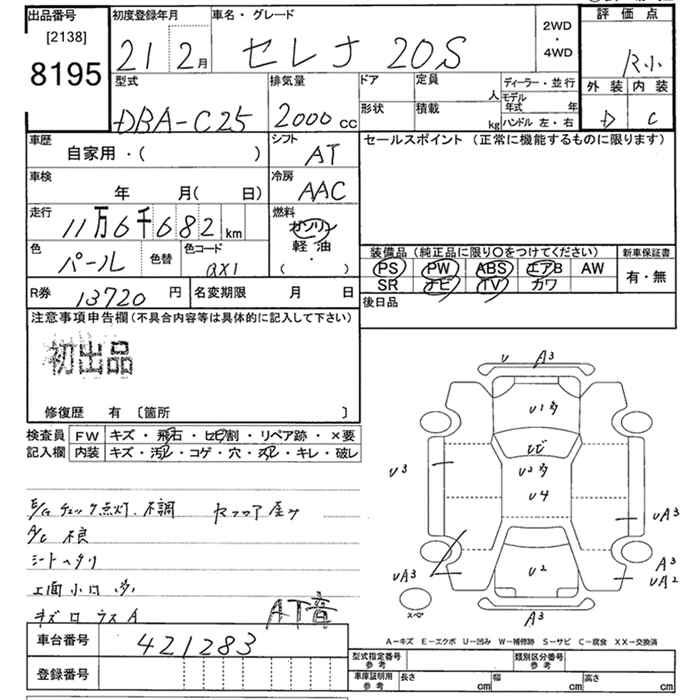 出品番号 [2138] 8195
初度登録年月 21 2月
車名・グレード セレナ 20S
2WD・4WD
評価点 R小
外装 D 内装 C
型式 DBA-C25
排気量 2000cc
ドア 定員 人
形状 積載 kg
ディーラー・並行
モデル年式 年
ハンドル 左・右
車歴 自家用・( )
シフト AT
セールスポイント (正常に機能するものに限ります)
車検 年 月( 日)
冷房 AAC
走行 11万6千682km
燃料 ガソリン 軽油 ( ・ )
色 パール 色替 色コード QX1
装備品 (純正品に限り〇をつけてください) 新車保証書
PS PW ABS エアB AW 有・無
SR ナビ TV カワ
R券 13720円 名変期限 月 日
後日品
注意事項申告欄 (不具合内容等は具体的に記入して下さい)
初出品
修復歴 有 [箇所 ]
検査員記入欄 FW キズ・飛石・ヒビ割・リペア跡・×要
内装 キズ・汚レ・コゲ・穴・スレ・キレ・破レ
E/gチェック点灯.不調
A/C 不良
シートヘタリ
上面小凹
AT音
車台番号 421283
登録番号
U A3
U1
U4
U3
U2
UA3
UA3
A3
UA2
スペア
A3
A-キズ E-エクボ U-凹み W-補修跡 S-サビ C-腐食 XX-交換済
型式指定番号 参考 類別区分番号 参考
車庫証明用 参考 長さ cm 幅 cm 高さ cm